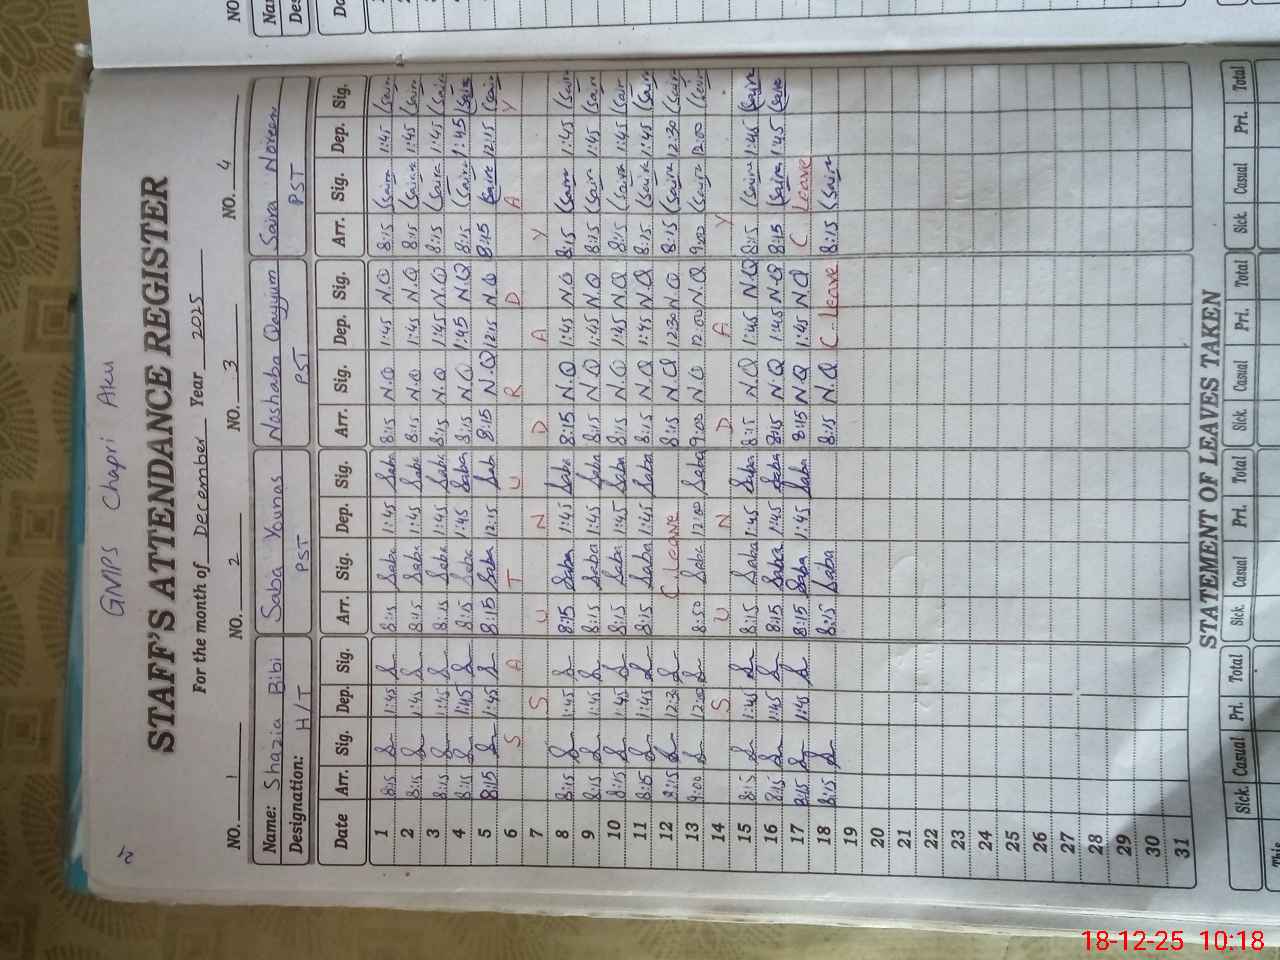 GMPS Chapri Aku
STAFF'S ATTENDANCE REGISTER
For the month of December Year 2025
NO. 1 NO. 2 NO. 3 NO. 4
Name: Shazia Bibi Saba Younas Noshaba Qayyum Saira Noreen
Designation: H/T PST PST PST
Date Arr. Sig. Dep. Sig. Arr. Sig. Dep. Sig. Arr. Sig. Dep. Sig. Arr. Sig. Dep. Sig.
1 8:15 1:45 8:15 Saba 1:45 Saba 8:15 N.Q 1:45 N.Q 8:15 Saira 1:45 Saira
2 8:15 1:45 8:15 Saba 1:45 Saba 8:15 N.Q 1:45 N.Q 8:15 Saira 1:45 Saira
3 8:15 1:45 8:15 Saba 1:45 Saba 8:15 N.Q 1:45 N.Q 8:15 Saira 1:45 Saira
4 8:15 1:45 8:15 Saba 1:45 Saba 8:15 N.Q 1:45 N.Q 8:15 Saira 1:45 Saira
5 8:15 1:45 8:15 Saba 12:15 Sab 8:15 N.Q 12:15 N.Q 8:15 Saira 12:15 Saira
6 S A T U R D A Y
7 S U N D A Y
8 8:15 1:45 8:15 Saba 1:45 Saba 8:15 N.Q 1:45 N.Q 8:15 Saira 1:45 Saira
9 8:15 1:45 8:15 Saba 1:45 Saba 8:15 N.Q 1:45 N.Q 8:15 Saira 1:45 Saira
10 8:15 1:45 8:15 Saba 1:45 Saba 8:15 N.Q 1:45 N.Q 8:15 Saira 1:45 Saira
11 8:15 1:45 8:15 Saba 1:45 Saba 8:15 N.Q 1:45 N.Q 8:15 Saira 1:45 Saira
12 8:15 12:30 C.leave 8:15 N.Q 12:30 N.Q 8:15 Saira 12:30 Saira
13 9:00 12:00 8:50 Saba 12:00 Saba 9:00 N.Q 12:00 N.Q 9:00 Saira 12:00 Saira
14 S U N D A Y
15 8:15 1:45 8:15 Saba 1:45 Saba 8:15 N.Q 1:45 N.Q 8:15 Saira 1:45 Saira
16 8:15 1:45 8:15 Saba 1:45 Saba 8:15 N.Q 1:45 N.Q 8:15 Saira 1:45 Saira
17 8:15 1:45 8:15 Saba 1:45 Saba 8:15 N.Q 1:45 N.Q C leave
18 8:15 8:15 Saba 8:15 N.Q C.leave 8:15 Saira
19
20
21
22
23
24
25
26
27
28
29
30
31
STATEMENT OF LEAVES TAKEN
Sick. Casual Pri. Total Sick. Casual Pri. Total Sick. Casual Pri. Total Sick. Casual Pri. Total
This
NO
Nan
Des
Da
18-12-25 10:18